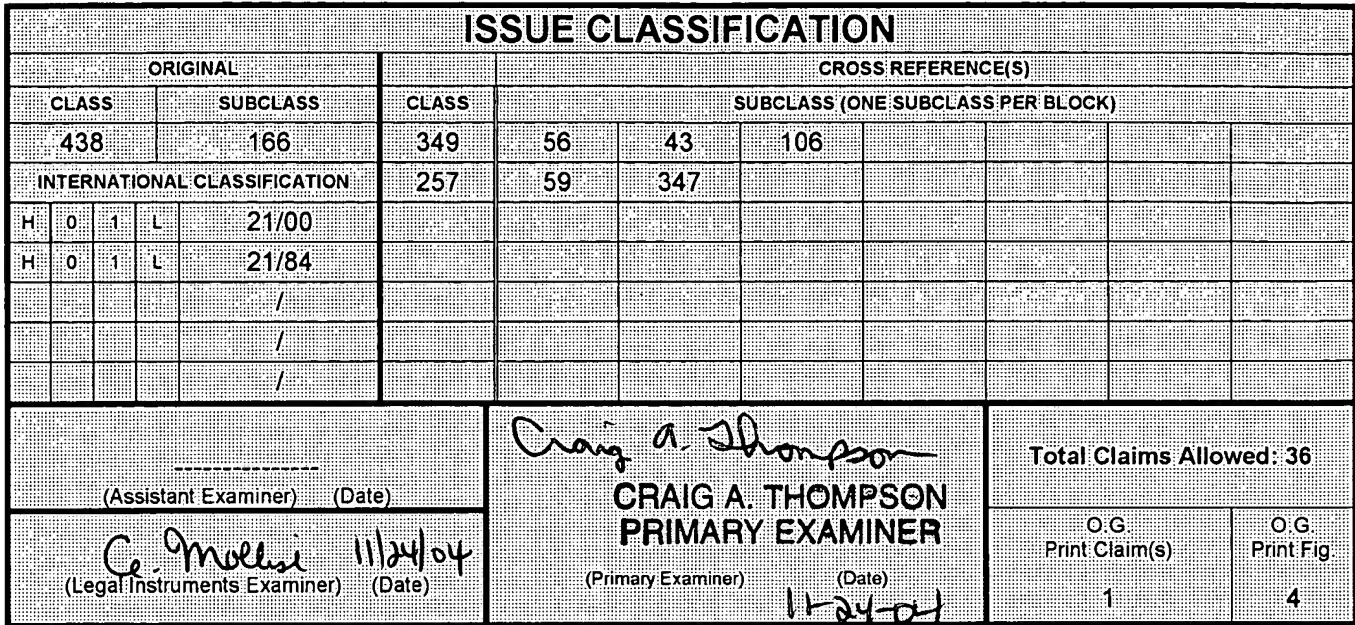 ISSUE CLASSIFICATION
ORIGINAL CROSS REFERENCE(S)
CLASS SUBCLASS CLASS SUBCLASS (ONE SUBCLASS PER BLOCK)
438 166 349 56 43 106
INTERNATIONAL CLASSIFICATION 257 59 347
H 0 1 L 21/00
H 0 1 L 21/84
/
/
/
---------------
(Assistant Examiner) (Date)
C. Mollisi 11/24/04
(Legal Instruments Examiner) (Date)
Craig A. Thompson
CRAIG A. THOMPSON
PRIMARY EXAMINER
(Primary Examiner) (Date)
11-24-04
Total Claims Allowed: 36
O.G.
Print Claim(s)
1
O.G.
Print Fig.
4